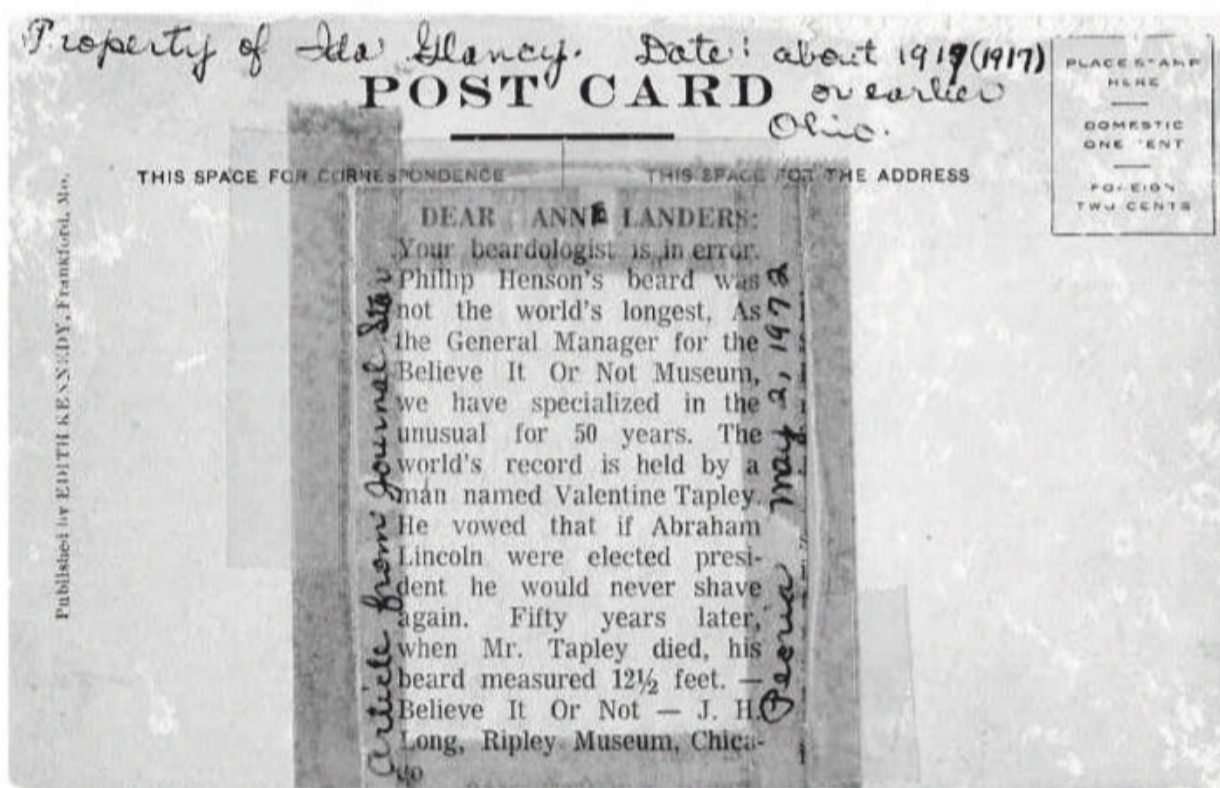 Property of Ida Glancy. Date: about 1917 (1917)
POST CARD or earlier
Ohio.
PLACE STAMP
HERE
DOMESTIC
ONE CENT
FOREIGN
TWO CENTS
THIS SPACE FOR CORRESPONDENCE
THIS SPACE FOR THE ADDRESS
Published by EDITH KENNEDY, Frankford, Mo.
Article from Journal Star
DEAR ANNE LANDERS:
Your beardologist is in error.
Phillip Henson's beard was
not the world's longest. As
the General Manager for the
Believe It Or Not Museum,
we have specialized in the
unusual for 50 years. The
world's record is held by a
man named Valentine Tapley.
He vowed that if Abraham
Lincoln were elected presi-
dent he would never shave
again. Fifty years later,
when Mr. Tapley died, his
beard measured 12½ feet. —
Believe It Or Not — J. H.
Long, Ripley Museum, Chica-
go
Peoria May 2, 1972